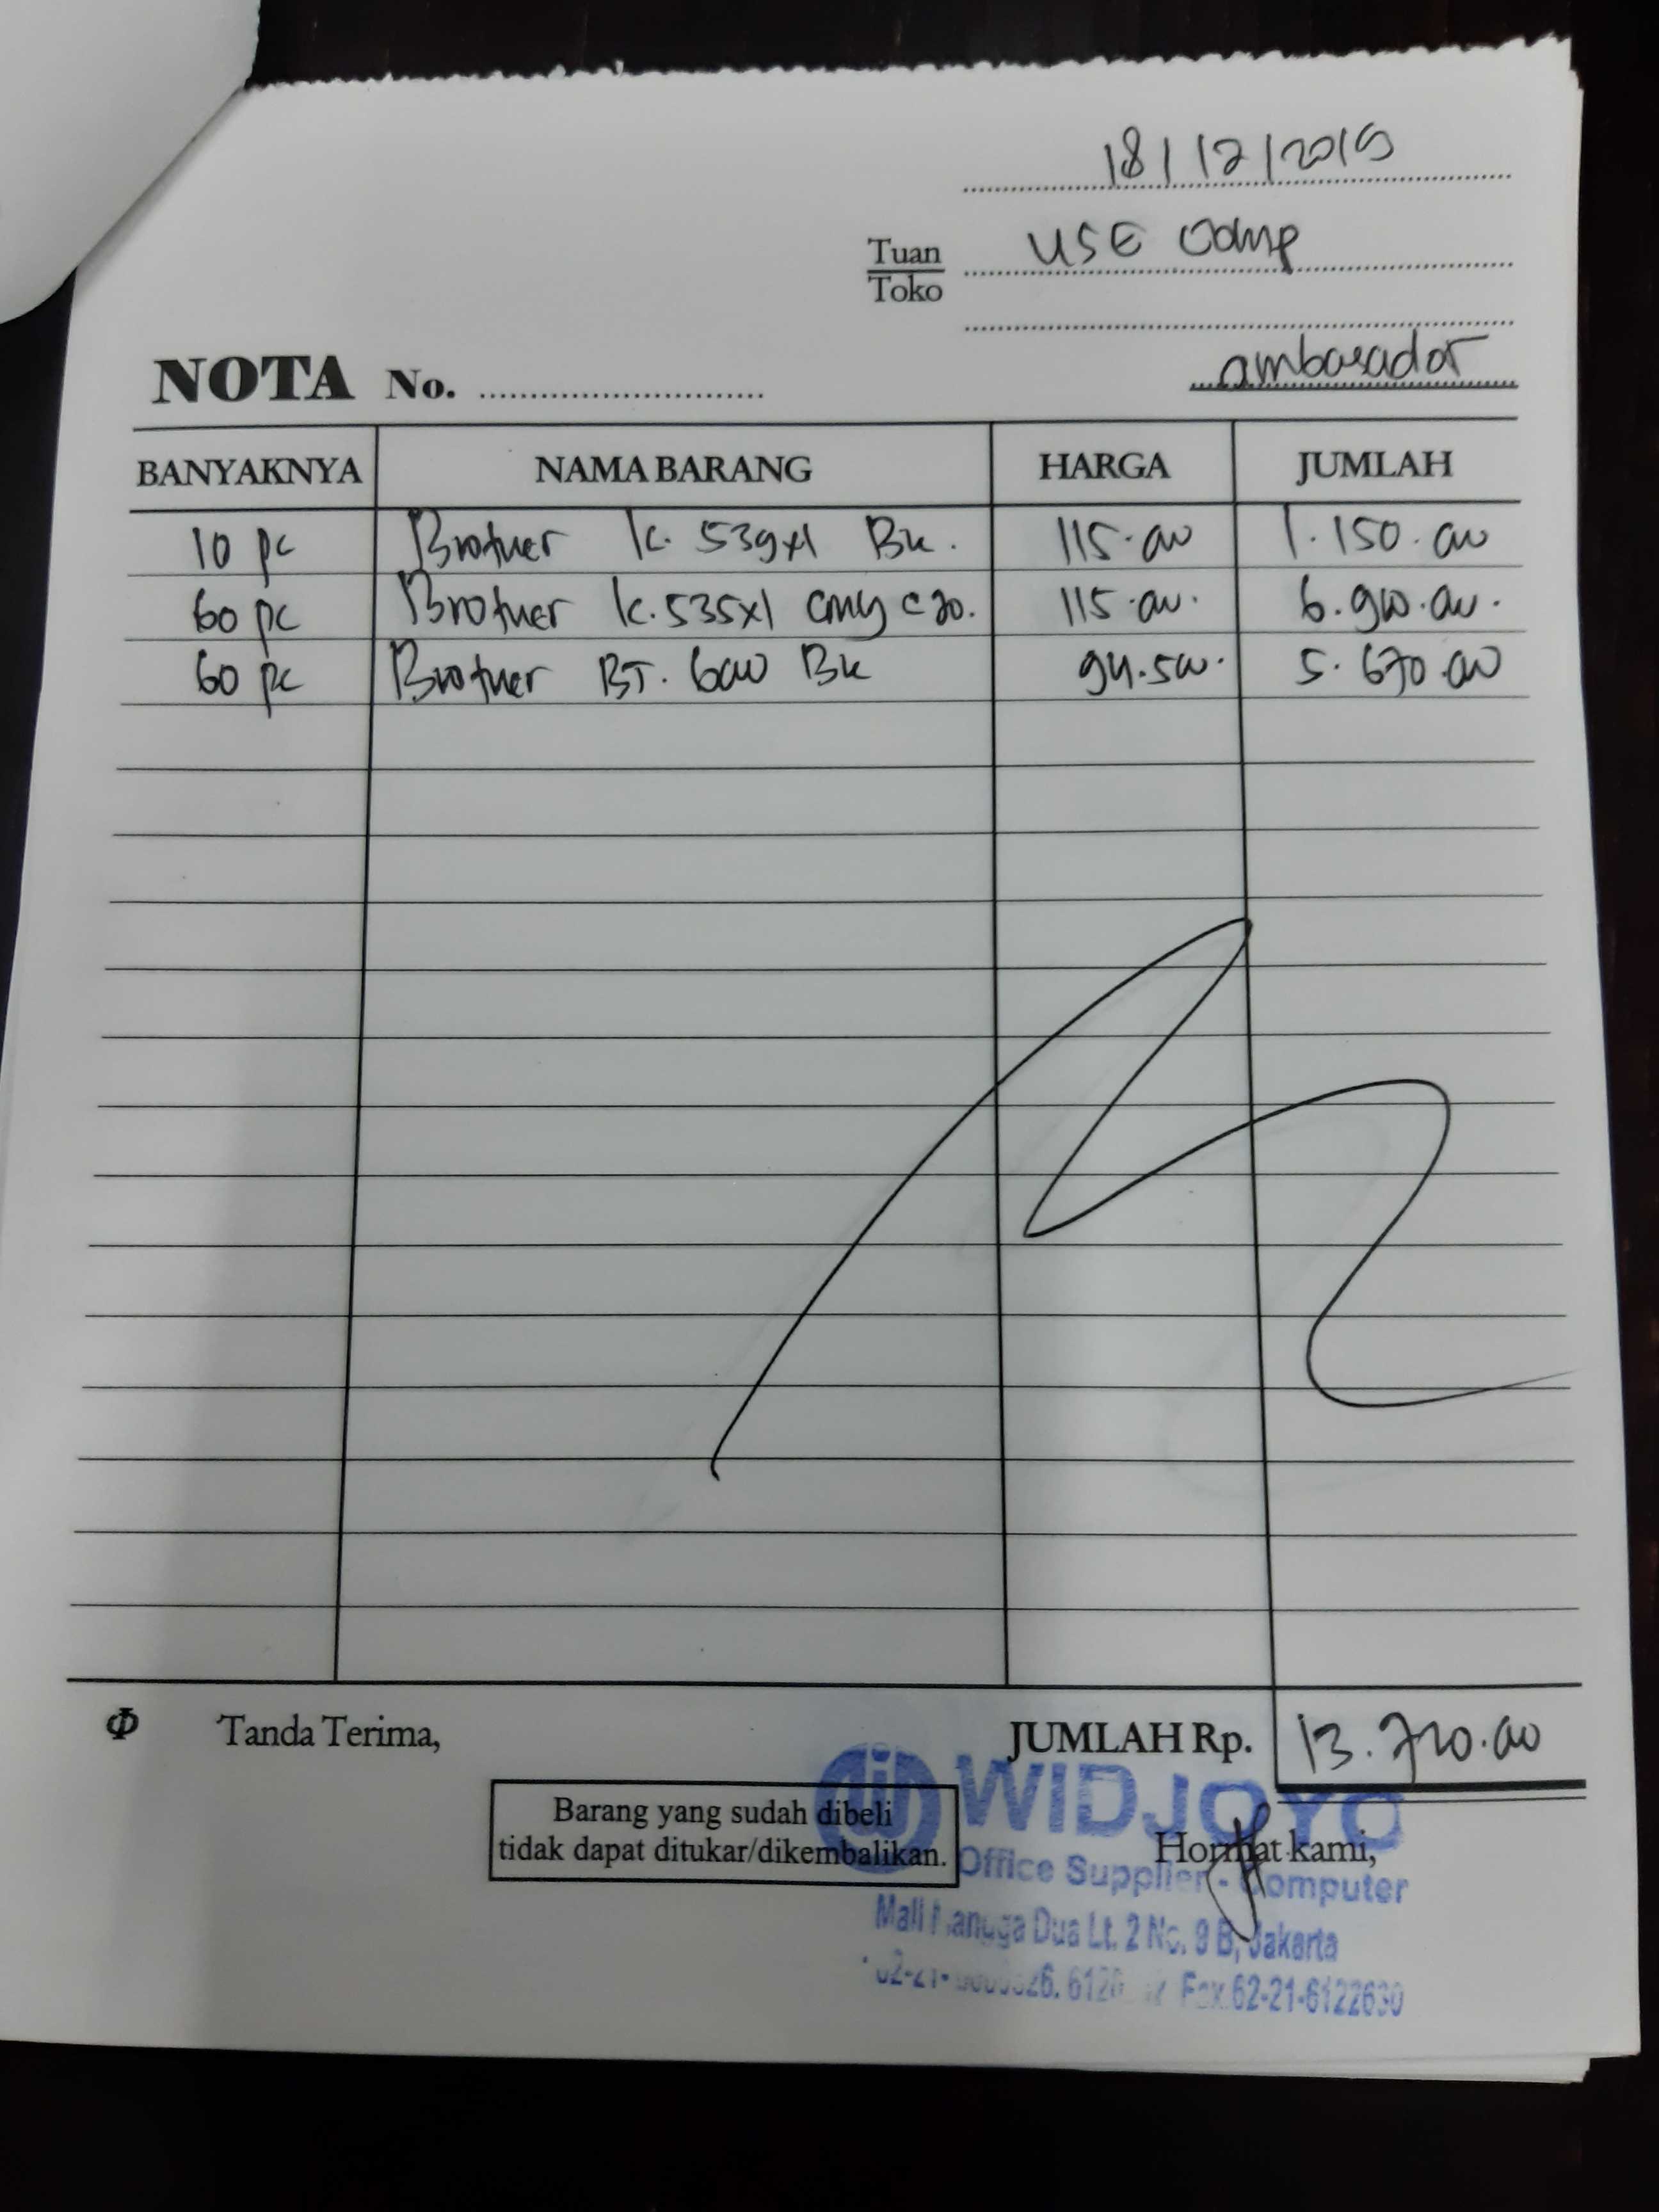 18/12/2019
Tuan
Toko
USE Comp
ambasador
NOTA No. ............................
BANYAKNYA NAMA BARANG HARGA JUMLAH
10 pc Brother lc. 539xl Bk. 115.000 1.150.000
60 pc Brother lc. 535xl cmy c 20. 115.000. 6.900.000.
60 pc Brother BT. 6000 Bk 94.500. 5.670.000
Φ Tanda Terima, JUMLAH Rp. 13.720.000
Barang yang sudah dibeli
tidak dapat ditukar/dikembalikan.
Hormat kami,
WIDJOYO
Office Supplier - Computer
Mall Mangga Dua Lt. 2 No. 9 B, Jakarta
Fax.62-21-6122630